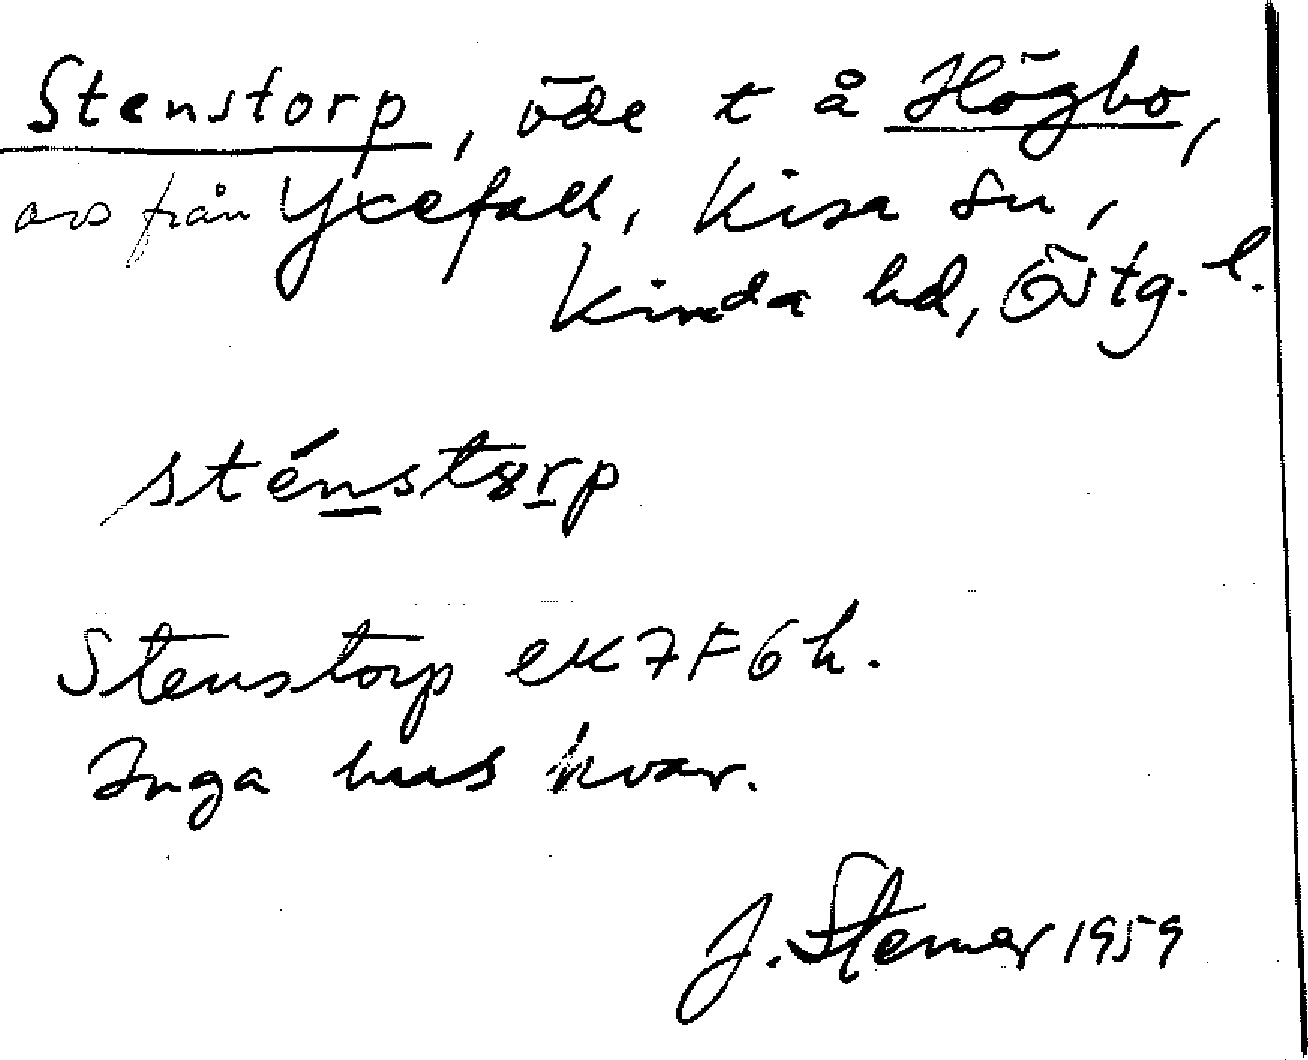 Stenstorp, öde t å Högbo,
avs från Yxefall, Kisa sn,
Kinda hd, Östg. l.
sténstorp
Stenstorp ek 7F6h.
Inga hus kvar.
J. Stemer 1959